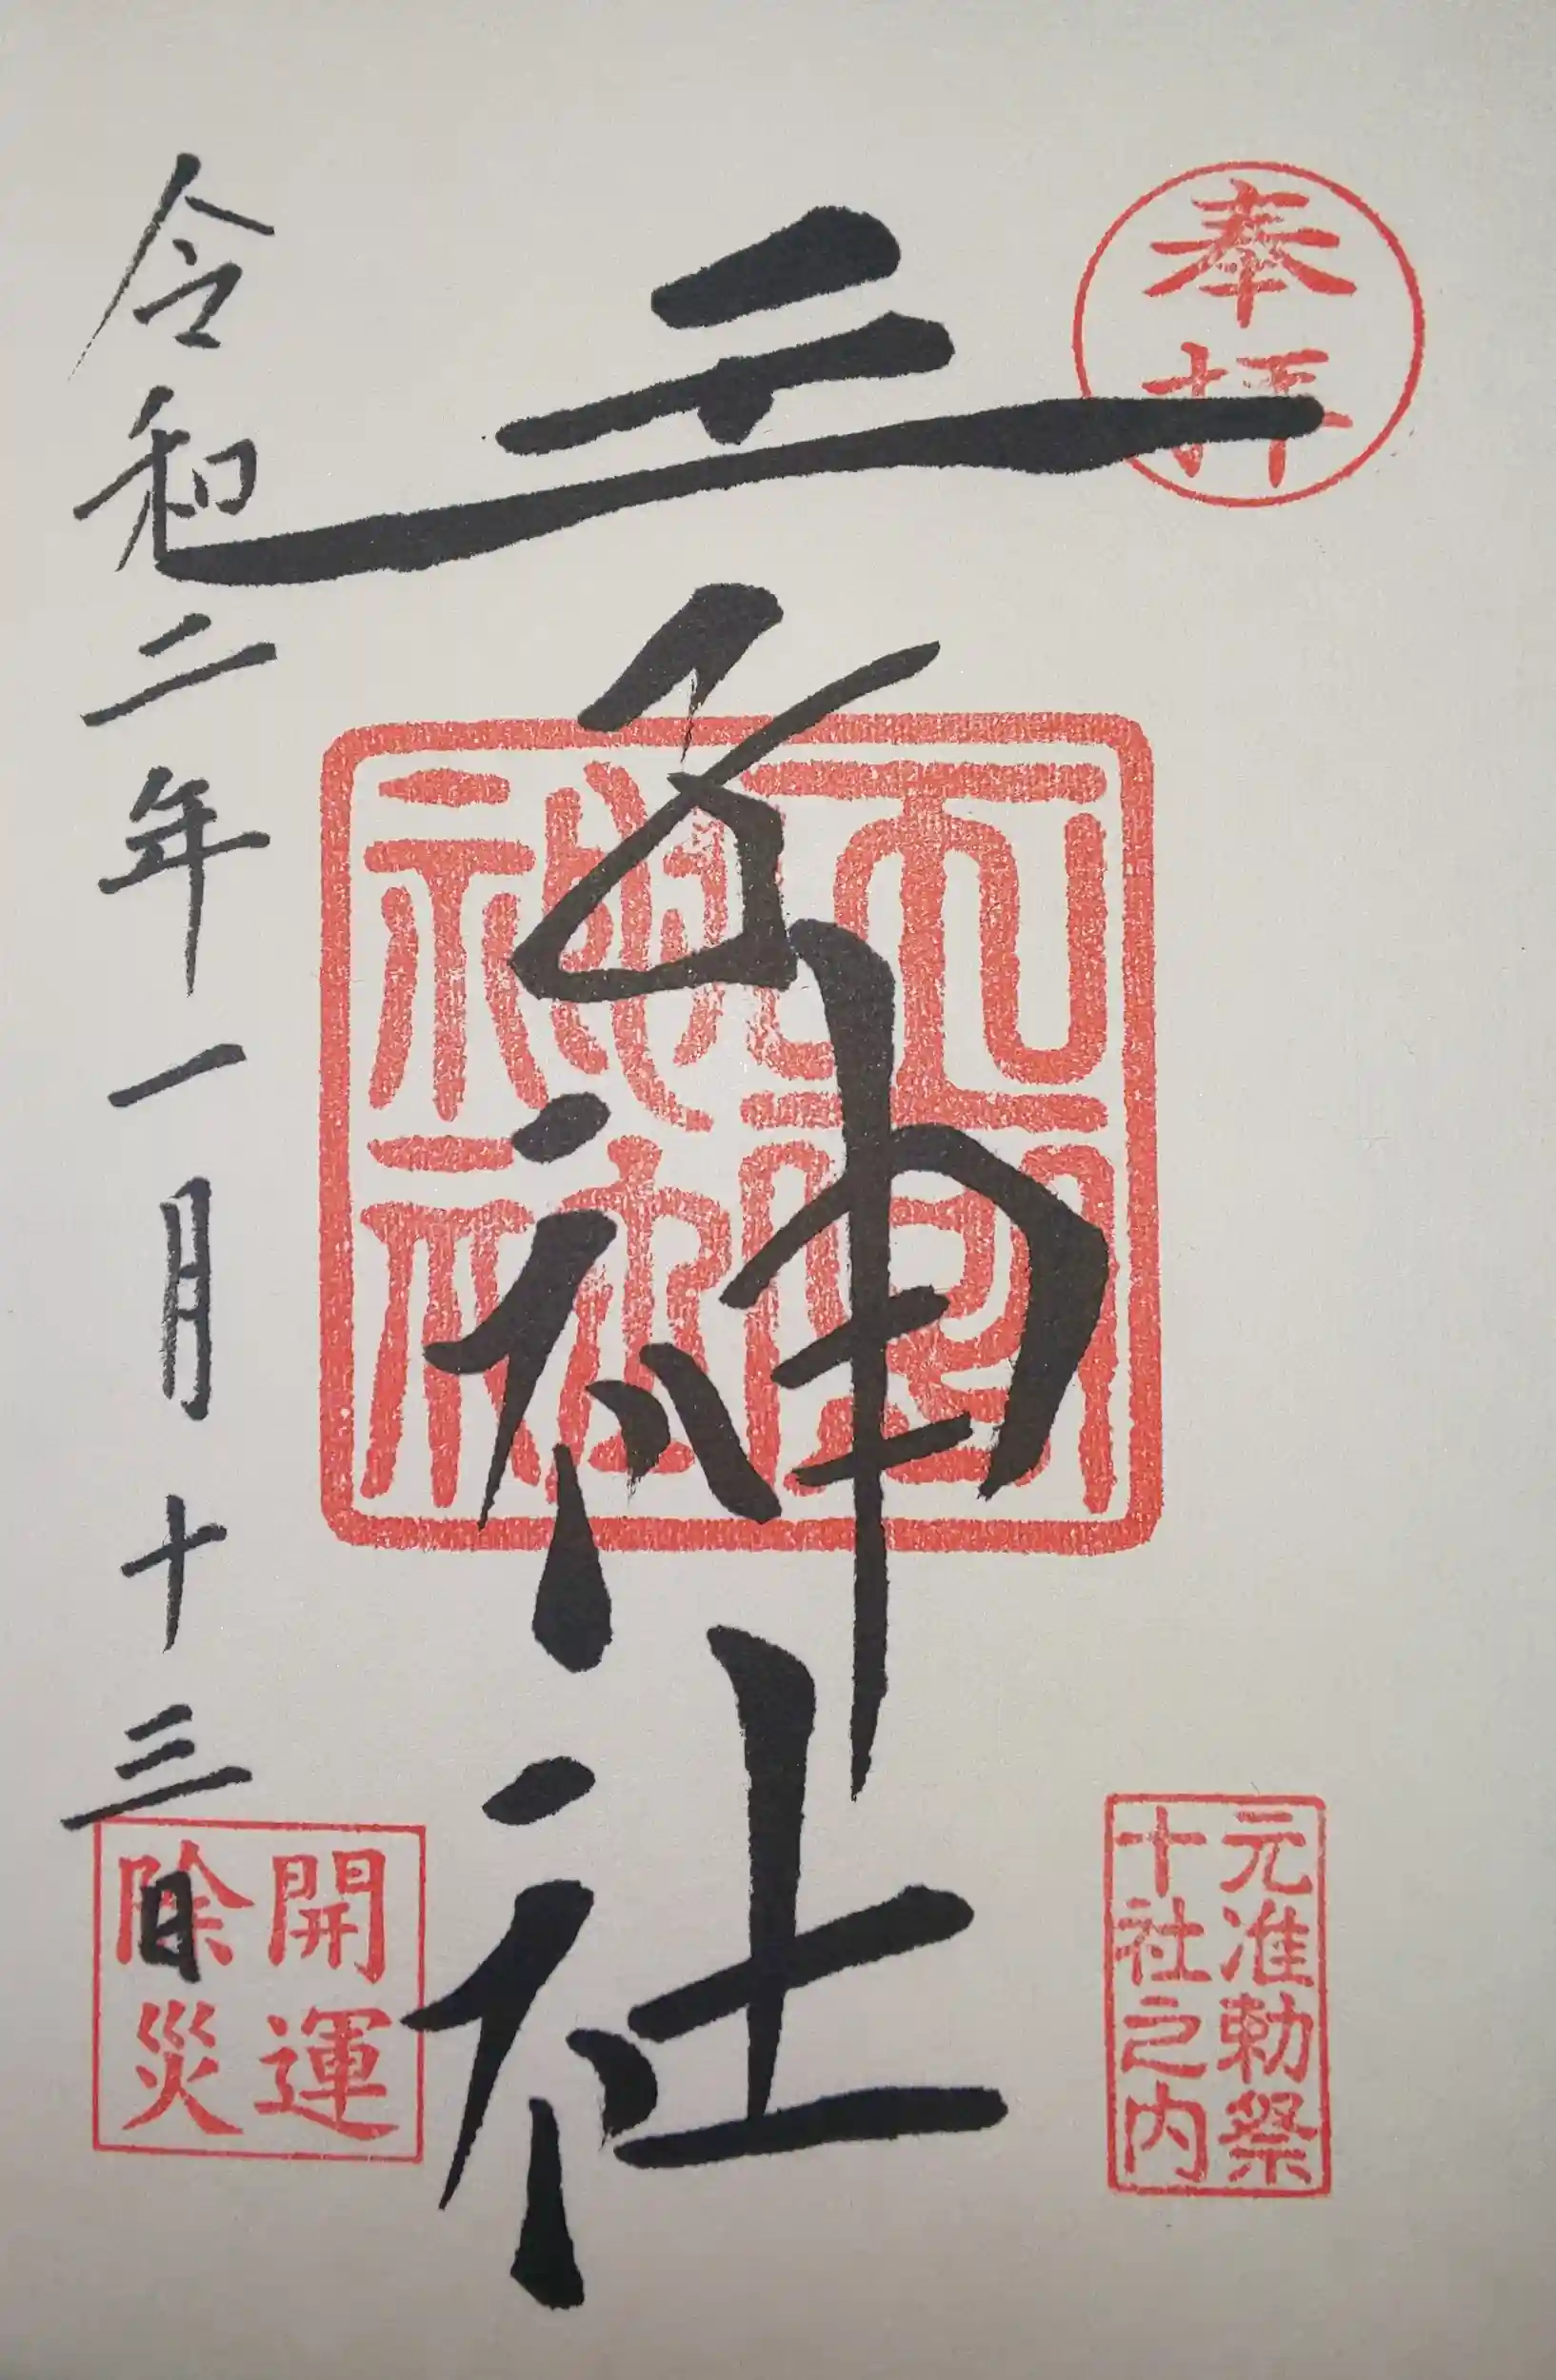 奉拝
元准勅祭
十社之内
王子神社
令和二年一月十三日
開運
除災